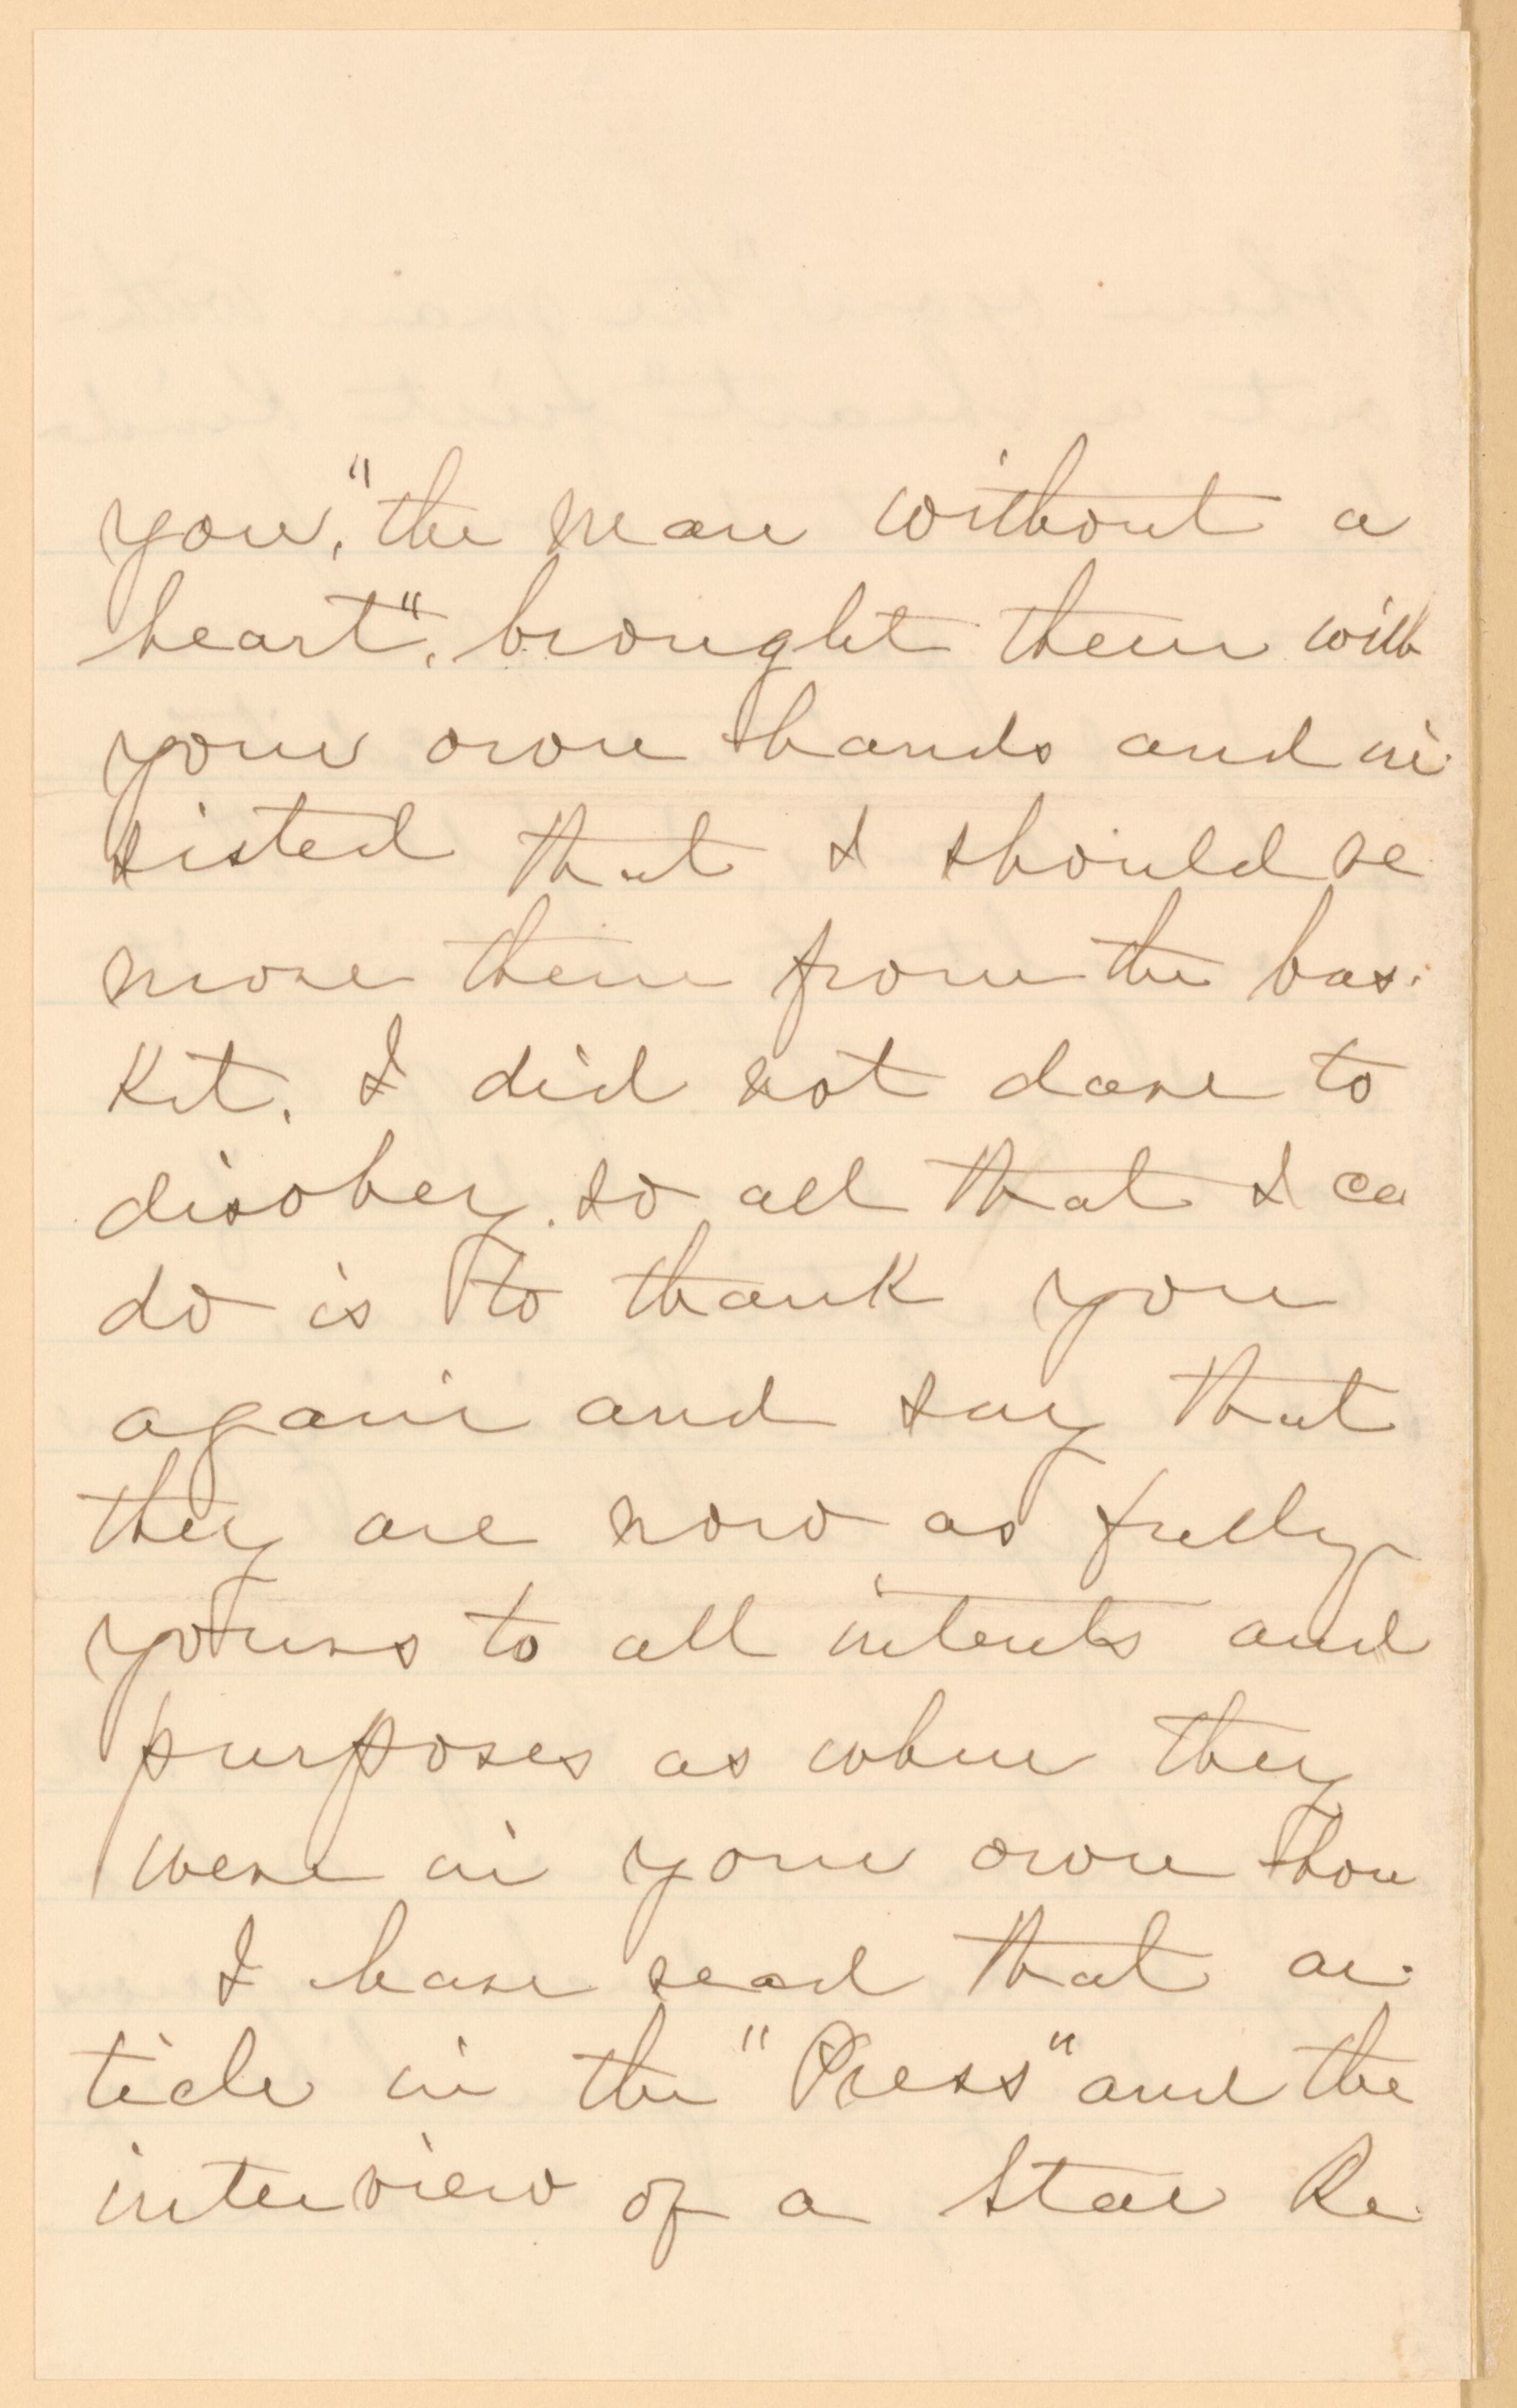 you, "the man without a
heart", brought them with
your own hands and in-
sisted that I should re
move them from the bas-
ket. I did not dare to
disobey. so all that I ca
do is to thank you
again and say that
they are now as fully
yours to all intents and
purposes as when they
were in your own
I have read that ar-
ticle in the "Press" and the
interview of a Star Re-